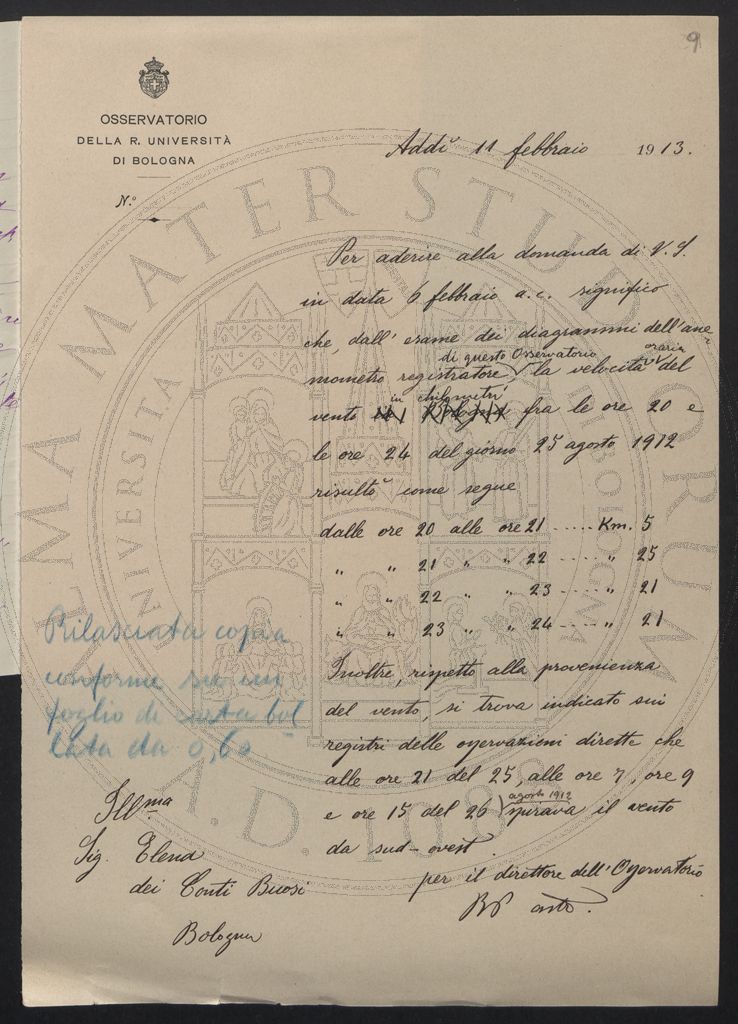 9
OSSERVATORIO
DELLA R. UNIVERSITÀ
DI BOLOGNA
N.°
Addì 11 febbraio 1913.
Per aderire alla domanda di V. S.
in data 6 febbraio a. c. significo
che, dall'esame dei diagrammi dell'ane
mometro registratore di questo Osservatorio, la velocità oraria del
vento in chilometri fra le ore 20 e
le ore 24 del giorno 25 agosto 1912
risultò come segue
dalle ore 20 alle ore 21 ..... Km. 5
" " 21 " " 22 ..... " 25
" " 22 " " 23 ..... " 21
" " 23 " " 24 ..... " 21
Inoltre, rispetto alla provenienza
del vento, si trova indicato sui
registri delle osservazioni dirette che
alle ore 21 del 25, alle ore 7, ore 9
e ore 15 del 26 agosto 1912 spirava il vento
da sud-ovest.
per il direttore dell'Osservatorio
Rilasciata copia
conforme su un
foglio di carta bol
lata da 0,60
Ill.ma
Sig. Elena
dei Conti Buosi
Bologna
ALMA MATER STUDIORUM
UNIVERSITÀ DI BOLOGNA
A.D. 1088